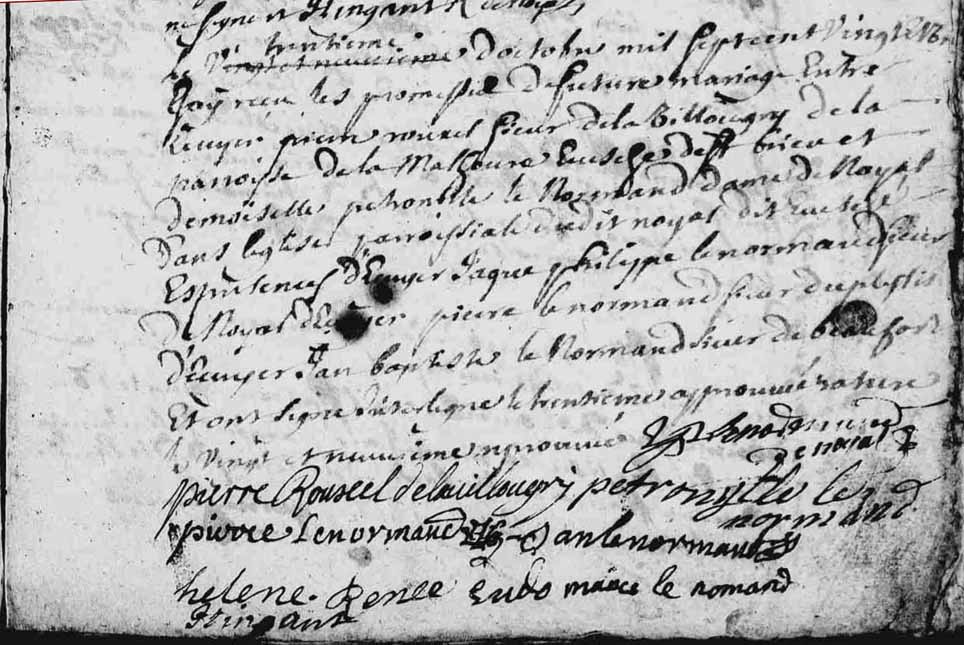 ne signe et Hingant R de noyal
trentieme
le vingt et neuvieme d'octobre mil sept cent vingt et
J'ay recue les promesse de future mariage Entre
Ecuyer pierre rouxel sieur de la Villougry de la
paroisse de la Malhoure Evesché de st brieu et
demoiselle petronille le Normand dame de Noyal
dans leglise paroissialle dudit noyal dit Evesché
Es presences d'Ecuyer Jaque philippe le normand sieur
de Noyal d'Ecuyer pierre le normand sieur du plessis
d'Ecuyer Jan baptiste le Normand sieur de beaufort
Et ont signe interligne le trentieme approuvé rature
le vingt et neuvieme approuvé
Lenormand
de noyal
pierre Rouxel delavillougry petronylle le
normand
pierre Lenormand Jan lenormand
helene Renee Eudo marie le normand
Hingant